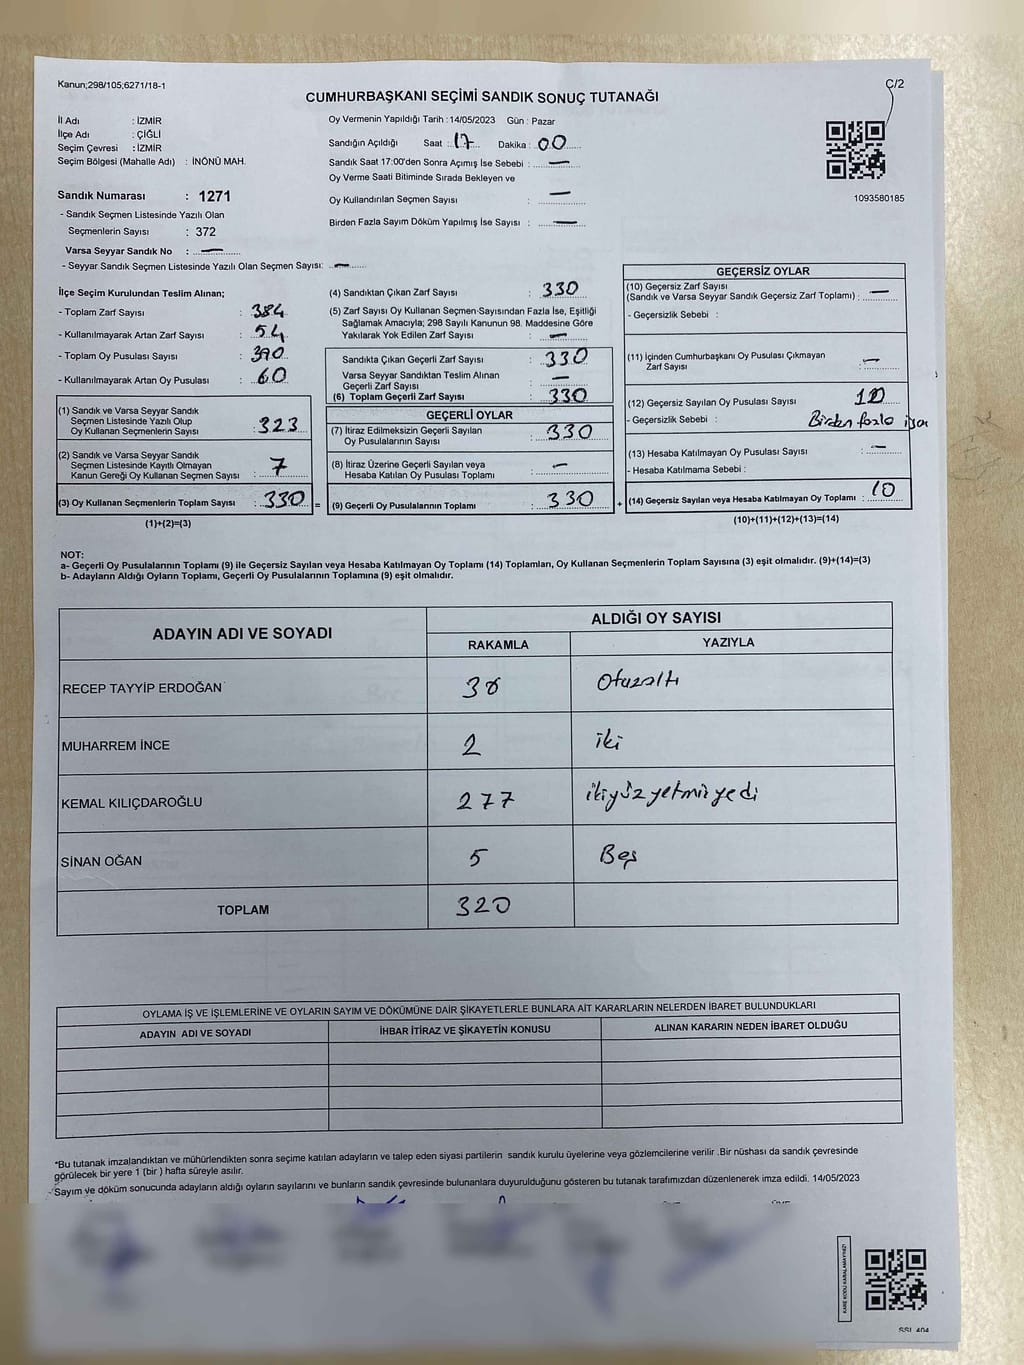 Kanun;298/105;6271/18-1
C/2
CUMHURBAŞKANI SEÇİMİ SANDIK SONUÇ TUTANAĞI
İl Adı : İZMİR
İlçe Adı : ÇİĞLİ
Seçim Çevresi : İZMİR
Seçim Bölgesi (Mahalle Adı) : İNÖNÜ MAH.
Sandık Numarası : 1271
- Sandık Seçmen Listesinde Yazılı Olan
Seçmenlerin Sayısı : 372
Varsa Seyyar Sandık No : —
- Seyyar Sandık Seçmen Listesinde Yazılı Olan Seçmen Sayısı: —
Oy Vermenin Yapıldığı Tarih : 14/05/2023 Gün : Pazar
Sandığın Açıldığı Saat : 17 Dakika : 00
Sandık Saat 17:00'den Sonra Açımış İse Sebebi : —
Oy Verme Saati Bitiminde Sırada Bekleyen ve
Oy Kullandırılan Seçmen Sayısı : —
Birden Fazla Sayım Döküm Yapılmış İse Sayısı : —
1093580185
İlçe Seçim Kurulundan Teslim Alınan;
- Toplam Zarf Sayısı : 384
- Kullanılmayarak Artan Zarf Sayısı : 54
- Toplam Oy Pusulası Sayısı : 390
- Kullanılmayarak Artan Oy Pusulası : 60
(1) Sandık ve Varsa Seyyar Sandık
Seçmen Listesinde Yazılı Olup
Oy Kullanan Seçmenlerin Sayısı : 323
(2) Sandık ve Varsa Seyyar Sandık
Seçmen Listesinde Kayıtlı Olmayan
Kanun Gereği Oy Kullanan Seçmen Sayısı : 7
(3) Oy Kullanan Seçmenlerin Toplam Sayısı : 330 =
(1)+(2)=(3)
(4) Sandıktan Çıkan Zarf Sayısı : 330
(5) Zarf Sayısı Oy Kullanan Seçmen Sayısından Fazla İse, Eşitliği
Sağlamak Amacıyla; 298 Sayılı Kanunun 98. Maddesine Göre
Yakılarak Yok Edilen Zarf Sayısı : —
Sandıkta Çıkan Geçerli Zarf Sayısı : 330
Varsa Seyyar Sandıktan Teslim Alınan
Geçerli Zarf Sayısı : —
(6) Toplam Geçerli Zarf Sayısı : 330
GEÇERLİ OYLAR
(7) İtiraz Edilmeksizin Geçerli Sayılan
Oy Pusulalarının Sayısı : 330
(8) İtiraz Üzerine Geçerli Sayılan veya
Hesaba Katılan Oy Pusulası Toplamı : —
(9) Geçerli Oy Pusulalarının Toplamı : 330 +
GEÇERSİZ OYLAR
(10) Geçersiz Zarf Sayısı
(Sandık ve Varsa Seyyar Sandık Geçersiz Zarf Toplamı) : —
- Geçersizlik Sebebi :
(11) İçinden Cumhurbaşkanı Oy Pusulası Çıkmayan
Zarf Sayısı : —
(12) Geçersiz Sayılan Oy Pusulası Sayısı : 10
- Geçersizlik Sebebi : Birden fazla
(13) Hesaba Katılmayan Oy Pusulası Sayısı : —
- Hesaba Katılmama Sebebi :
(14) Geçersiz Sayılan veya Hesaba Katılmayan Oy Toplamı : 10
(10)+(11)+(12)+(13)=(14)
NOT:
a- Geçerli Oy Pusulalarının Toplamı (9) ile Geçersiz Sayılan veya Hesaba Katılmayan Oy Toplamı (14) Toplamları, Oy Kullanan Seçmenlerin Toplam Sayısına (3) eşit olmalıdır. (9)+(14)=(3)
b- Adayların Aldığı Oyların Toplamı, Geçerli Oy Pusulalarının Toplamına (9) eşit olmalıdır.
ADAYIN ADI VE SOYADI ALDIĞI OY SAYISI
RAKAMLA YAZIYLA
RECEP TAYYİP ERDOĞAN 36 Otuzaltı
MUHARREM İNCE 2 iki
KEMAL KILIÇDAROĞLU 277 ikiyüzyetmişyedi
SİNAN OĞAN 5 Beş
TOPLAM 320
OYLAMA İŞ VE İŞLEMLERİNE VE OYLARIN SAYIM VE DÖKÜMÜNE DAİR ŞİKAYETLERLE BUNLARA AİT KARARLARIN NELERDEN İBARET BULUNDUKLARI
ADAYIN ADI VE SOYADI İHBAR İTİRAZ VE ŞİKAYETİN KONUSU ALINAN KARARIN NEDEN İBARET OLDUĞU
*Bu tutanak imzalandıktan ve mühürlendikten sonra seçime katılan adayların ve talep eden siyasi partilerin sandık kurulu üyelerine veya gözlemcilerine verilir .Bir nüshası da sandık çevresinde
görülecek bir yere 1 (bir ) hafta süreyle asılır.
Sayım ve döküm sonucunda adayların aldığı oyların sayılarını ve bunların sandık çevresinde bulunanlara duyurulduğunu gösteren bu tutanak tarafımızdan düzenlenerek imza edildi. 14/05/2023
KARE KODU KARALAMAYINIZ!